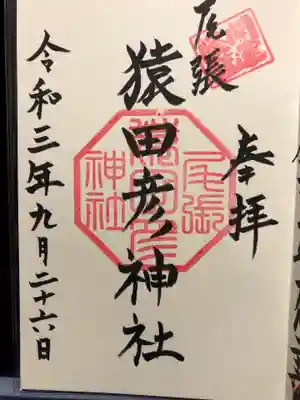 奉拝
尾張
猿田彦神社
令和三年九月二十六日
尾張
猿田彦
神社